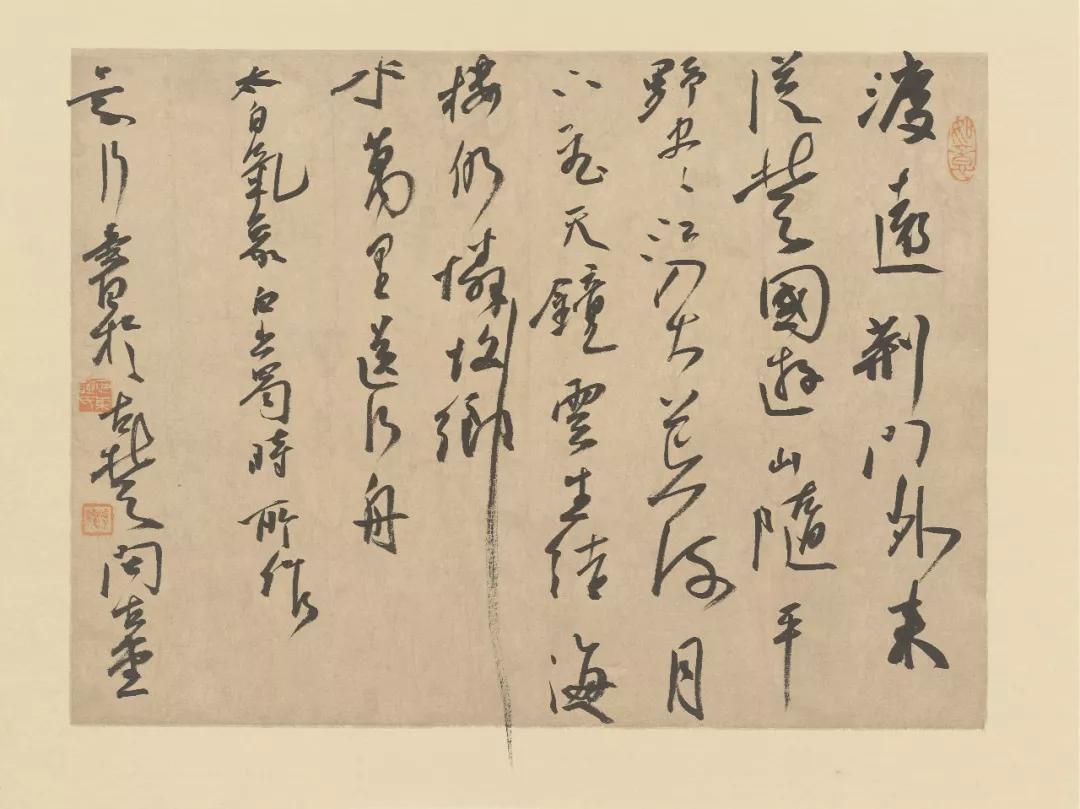 渡遠荆門外来
從楚國遊山隨平
野尽江入大荒流月
下飛天鏡雲生結海
樓仍憐故鄉
水萬里送行舟
太白氣象白出蜀時所作
書於古楚
如意